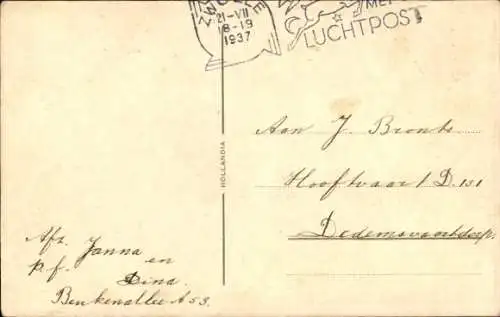 ZWOLLE
21-VII
8-19
1937
MET
LUCHTPOST
HOLLANDIA
Aan J. Bronts
Hooftvaart D. 131
Dedemsvaartdorp.
Afz. Janna
en
p.f. Dina.
Beukenallee A 53.